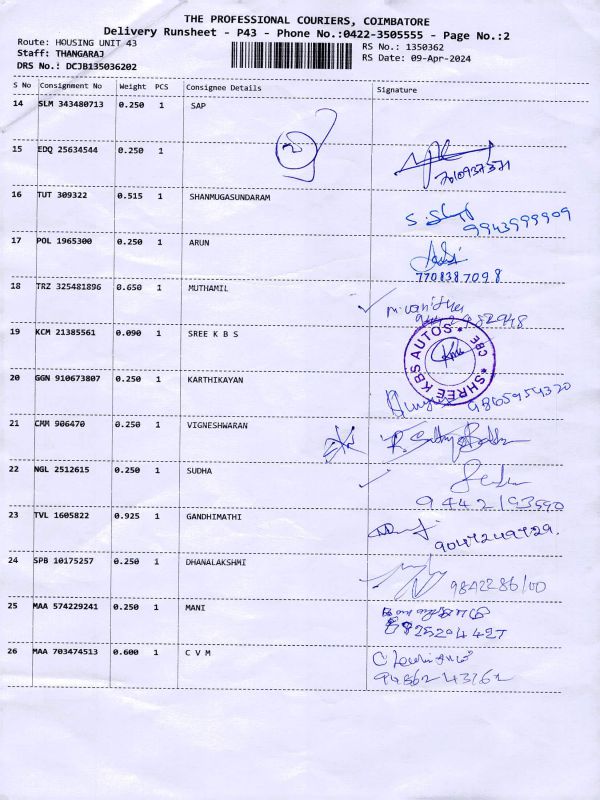 THE PROFESSIONAL COURIERS, COIMBATORE
Delivery Runsheet - P43 - Phone No.:0422-3505555 - Page No.:2
Route: HOUSING UNIT 43
RS No.: 1350362
Staff: THANGARAJ
RS Date: 09-Apr-2024
DRS No.: DCJB135036202
S No Consignment No Weight PCS Consignee Details Signature
14 SLM 343480713 0.250 1 SAP
15 EDQ 25634544 0.250 1
16 TUT 309322 0.515 1 SHANMUGASUNDARAM
9943999909
17 POL 1965300 0.250 1 ARUN
7708387098
18 TRZ 325481896 0.650 1 MUTHAMIL
19 KCM 21385561 0.090 1 SREE K B S
SHREE KBS AUTOS * CBE *
20 GGN 910673807 0.250 1 KARTHIKAYAN
9865954320
21 CMM 906470 0.250 1 VIGNESHWARAN
22 NGL 2512615 0.250 1 SUDHA
9442193590
23 TVL 1605822 0.925 1 GANDHIMATHI
9047249729.
24 SPB 10175257 0.250 1 DHANALAKSHMI
9842286100
25 MAA 574229241 0.250 1 MANI
26 MAA 703474513 0.600 1 C V M
9486243762